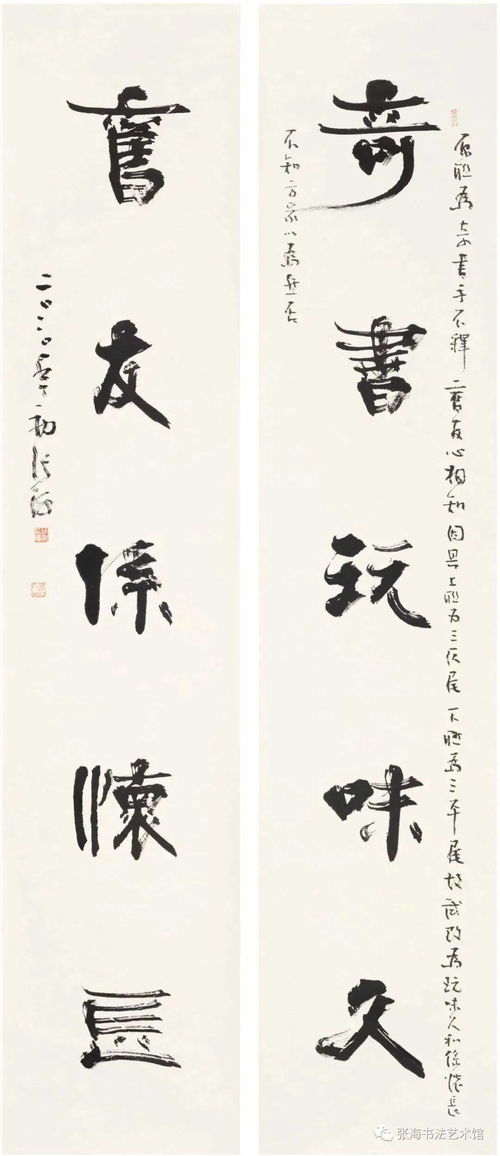 奇書玩味久
原联為奇書手不釋舊友心相知因其上联为三仄尾下联為三平尾故試改為玩味久和係懷長
不知方家以為然否
舊友係懷長
二〇二〇年初張海
张海书法艺术馆